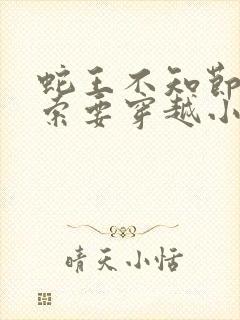 蛇王不知节
索要穿越小
晴天小恬